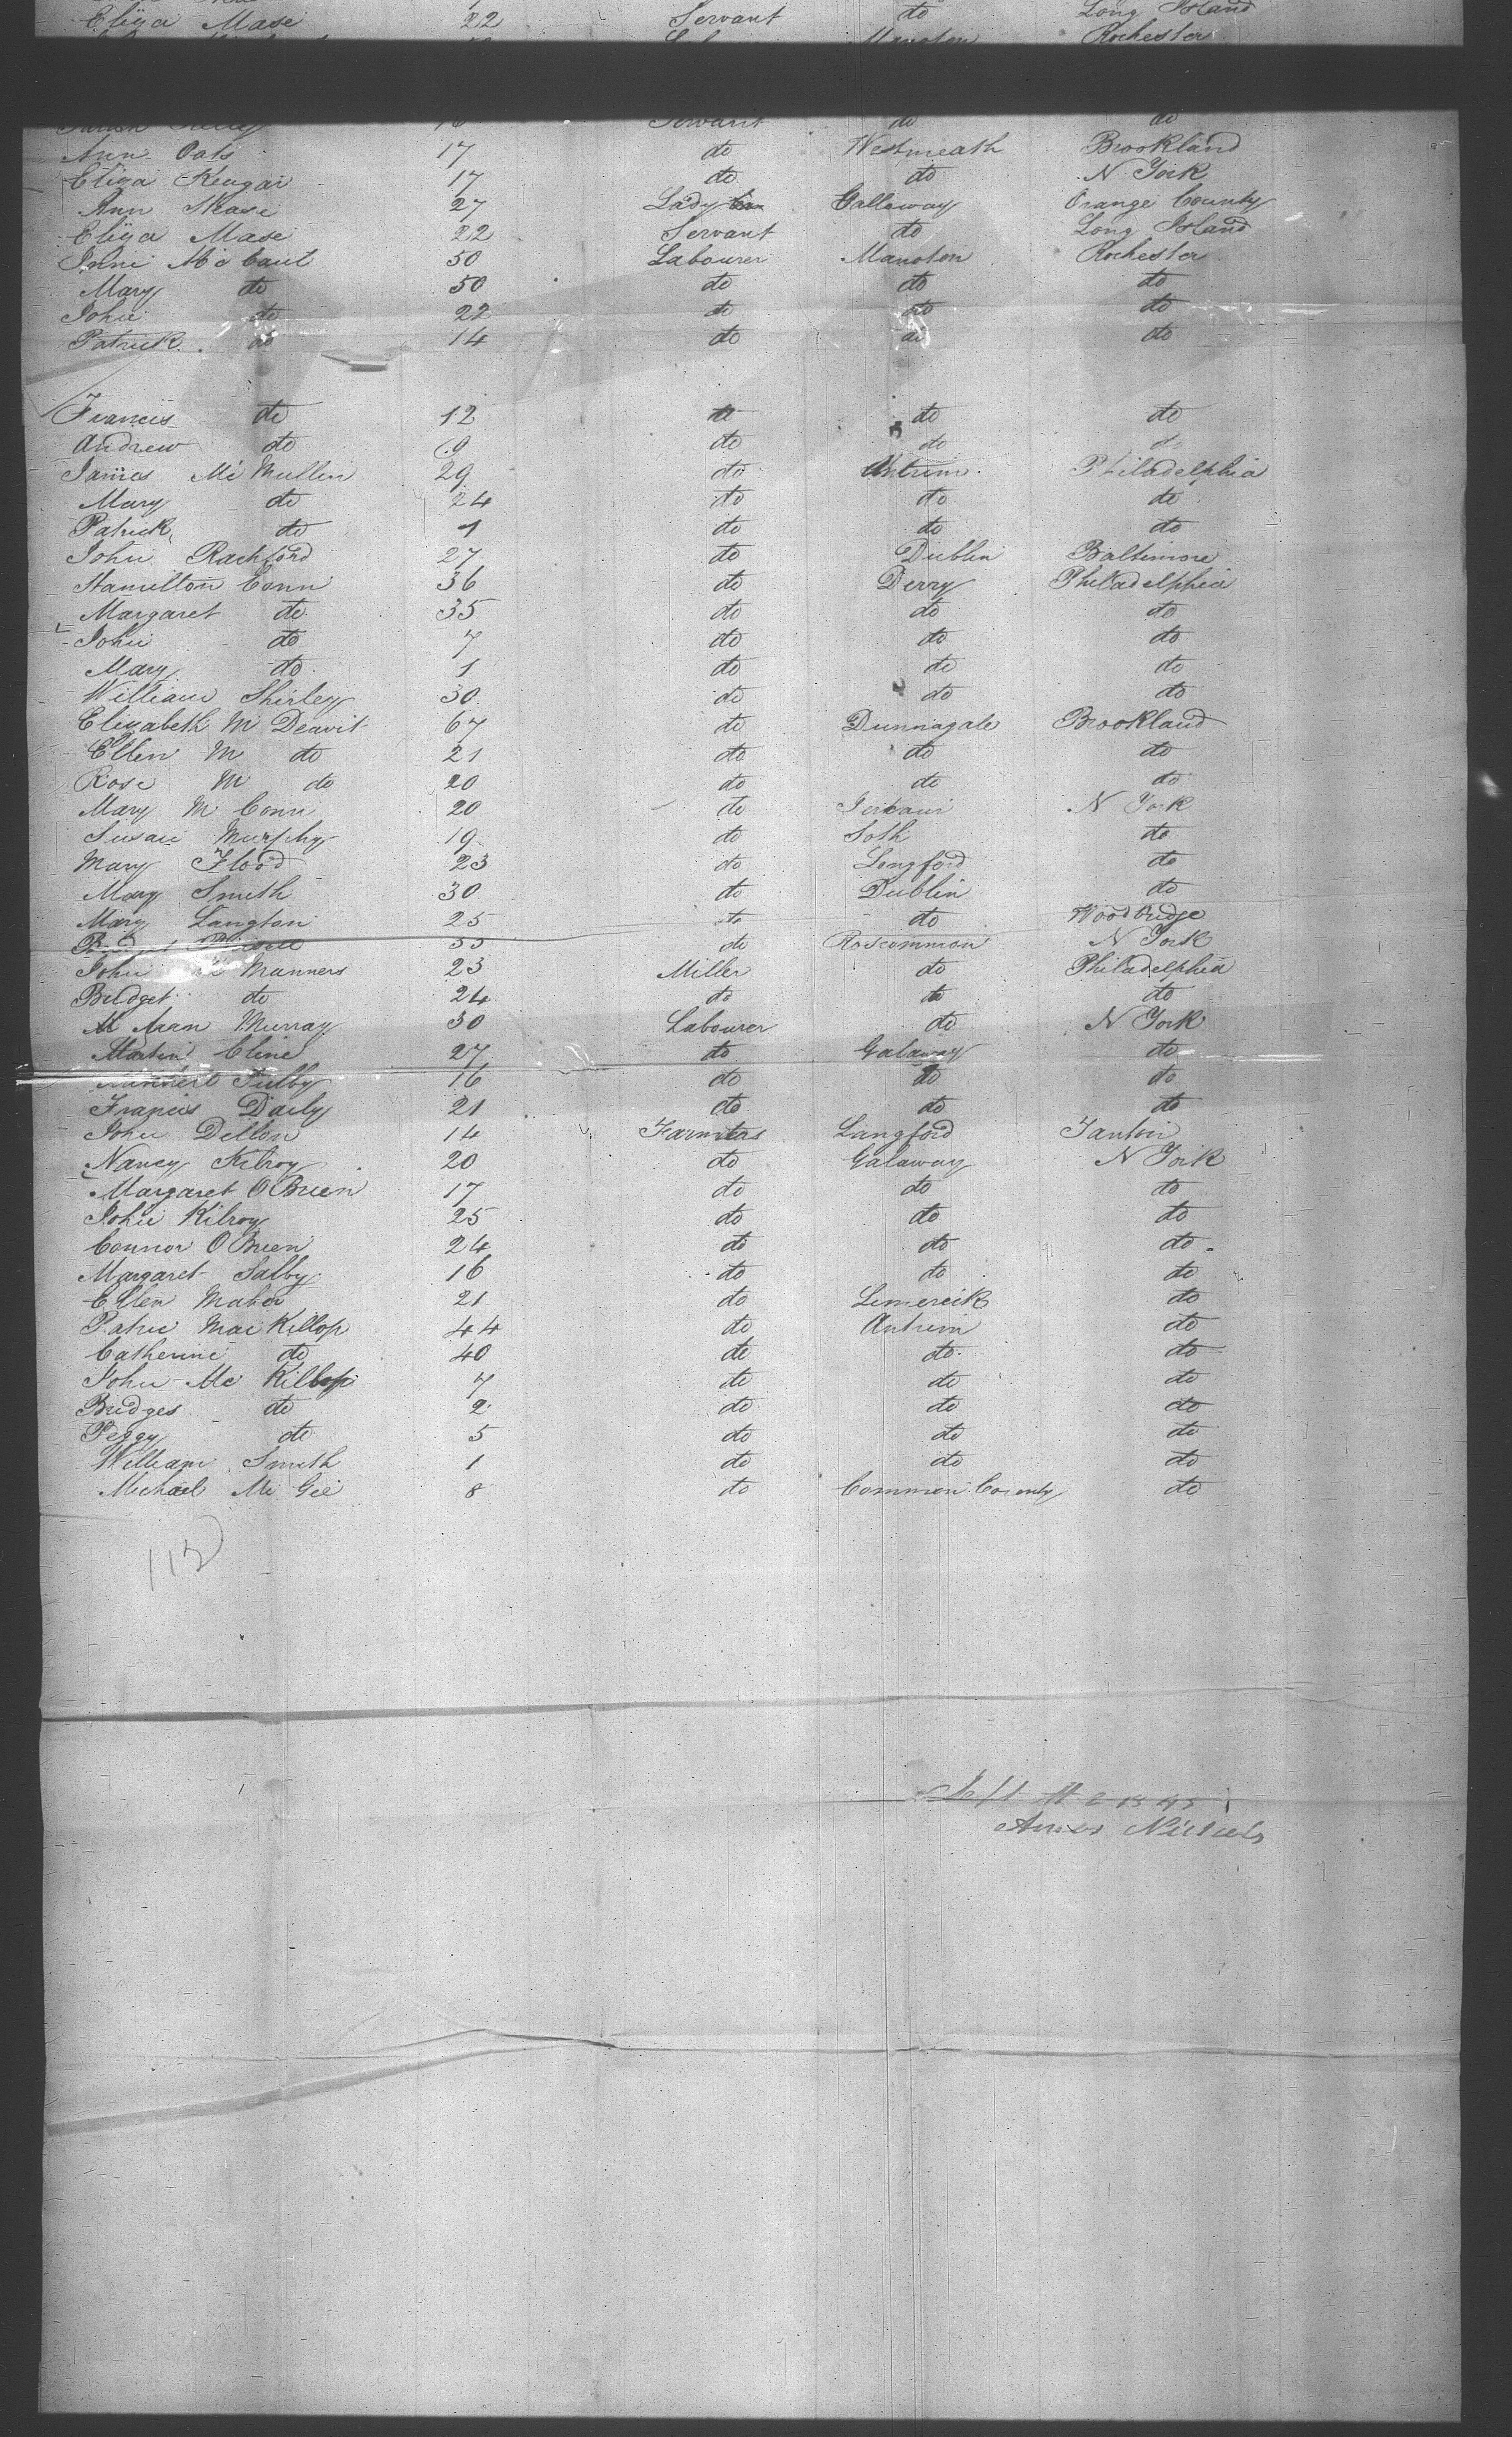 Eliza Mase 22 Servant do Long Island
Rochester
Servant do do
Ann Oats 17 do Westmeath Brookland
Eliza Keugar 17 do do N York
Ann Mase 27 Lady Gallaway Orange County
Eliza Mase 22 Servant do Long Island
Mc Caul 50 Labourer Manoton Rochester
Mary do 50 do do do
John do 22 do do do
Patrick do 14 do do do
Francis do 12 do do do
Andrew do 9 do do do
James Mc Mullin 29 do Antrim Philadelphia
Mary do 24 do do do
Patrick do 1 do do do
John Rachford 27 do Dublin Baltimore
Hamilton Conn 36 do Derry Philadelphia
Margaret do 35 do do do
John do 7 do do do
Mary do 1 do do do
William Shirley 30 do do do
Elizabeth M Deavit 67 do Dunnagale Brookland
Ellen M do 21 do do do
Rose M do 20 do do do
Mary M Conn 20 do N York
Susan Murphy 19 do do
Mary Flood 23 do Longford do
Mary Smith 30 do Dublin do
Mary Langton 25 do do Woodbridge
do Roscommon N York
John Mc Manners 23 Miller do Philadelphia
Bridget do 24 do do do
M Ann Murray 30 Labourer do N York
Martin Cline 27 do Galaway do
16 do do do
Francis Daily 21 do do do
John Dellon 14 Farmters Langford Tanton
Nancy Kilroy 20 do Galaway N York
Margaret O Brien 17 do do do
John Kilroy 25 do do do
Connor O Brien 24 do do do
Margaret Salby 16 do do do
Ellen Maher 21 do Limereik do
Patric Mac Killop 44 do Antrim do
Catherine do 40 do do do
John Mc Killop 7 do do do
Bridges do 2 do do do
Peggy do 5 do do do
William Smith 1 do do do
Michael Mc Gee 8 do Common County do
112